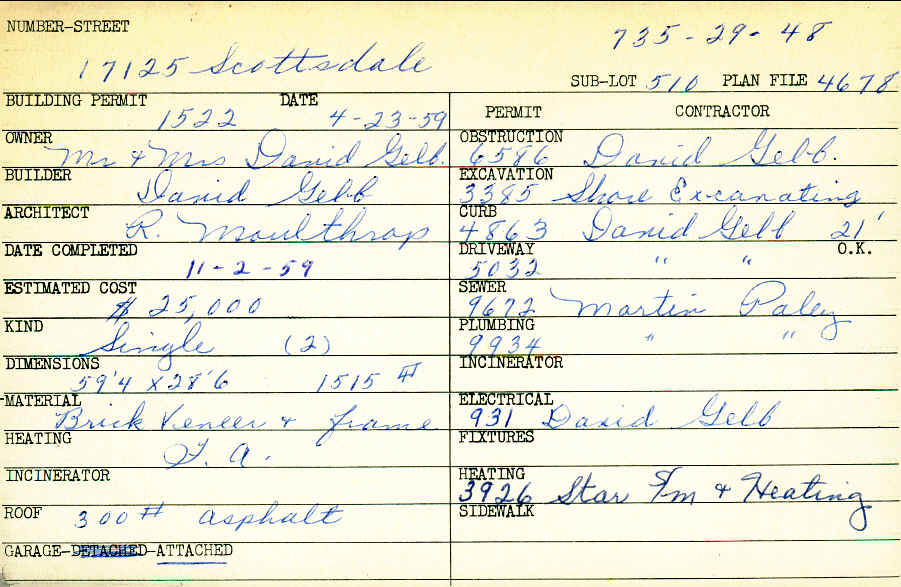 NUMBER-STREET
735-29-48
17125 Scottsdale
SUB-LOT 510 PLAN FILE 4678
BUILDING PERMIT DATE
1522 4-23-59
OWNER
Mr & Mrs David Gelb.
BUILDER
David Gelb
ARCHITECT
R. Moulthrop
DATE COMPLETED
11-2-59
ESTIMATED COST
$ 25,000
KIND
Single (2)
DIMENSIONS
59'4 x 28'6 1515 #
MATERIAL
Brick Veneer & frame
HEATING
F. A.
INCINERATOR
ROOF 300# asphalt
GARAGE-DETACHED-ATTACHED
PERMIT CONTRACTOR
OBSTRUCTION
6586 David Gelb.
EXCAVATION
3385 Shore Excavating
CURB
4863 David Gelb 21'
DRIVEWAY O.K.
5032 " "
SEWER
9672 Martin Paley
PLUMBING
9934 " "
INCINERATOR
ELECTRICAL
931 David Gelb
FIXTURES
HEATING
3926 Star Fm & Heating
SIDEWALK